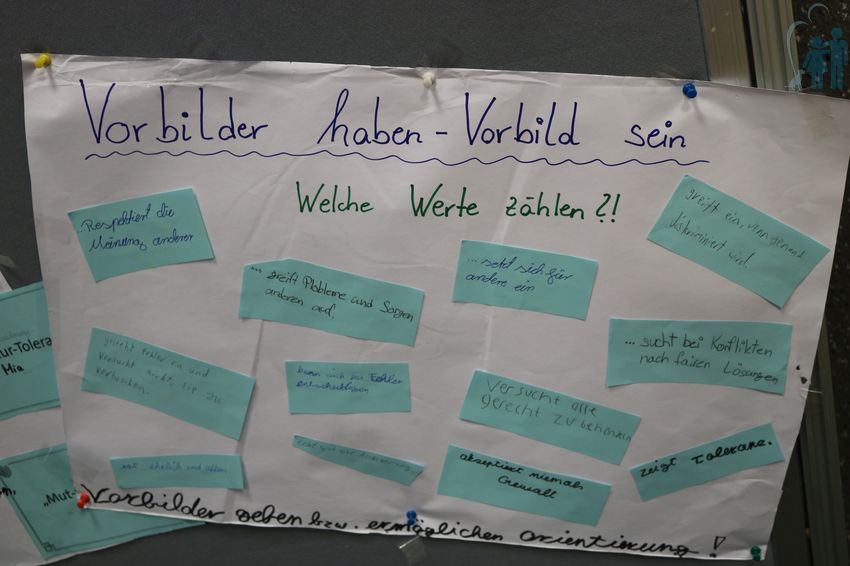 Vorbilder haben - Vorbild sein
Welche Werte zählen?!
...Respektiert die
Meinung anderer
greift ein, wenn jemand
diskriminiert wird.
... setzt sich für
andere ein
... greift Probleme und Sorgen
anderer auf.
... sucht bei Konflikten
nach fairen Lösungen
gesteht Fehler ein und
versucht nicht, sie zu
vertuschen.
kann sich für Fehler
entschuldigen
Versucht alle
gerecht zu behandeln
ist ehrlich und offen
akzeptiert niemals
Gewalt
zeigt Toleranz.
Vorbilder geben bzw. ermöglichen orientierung!
ur-Tolera
Mia
„Mut-